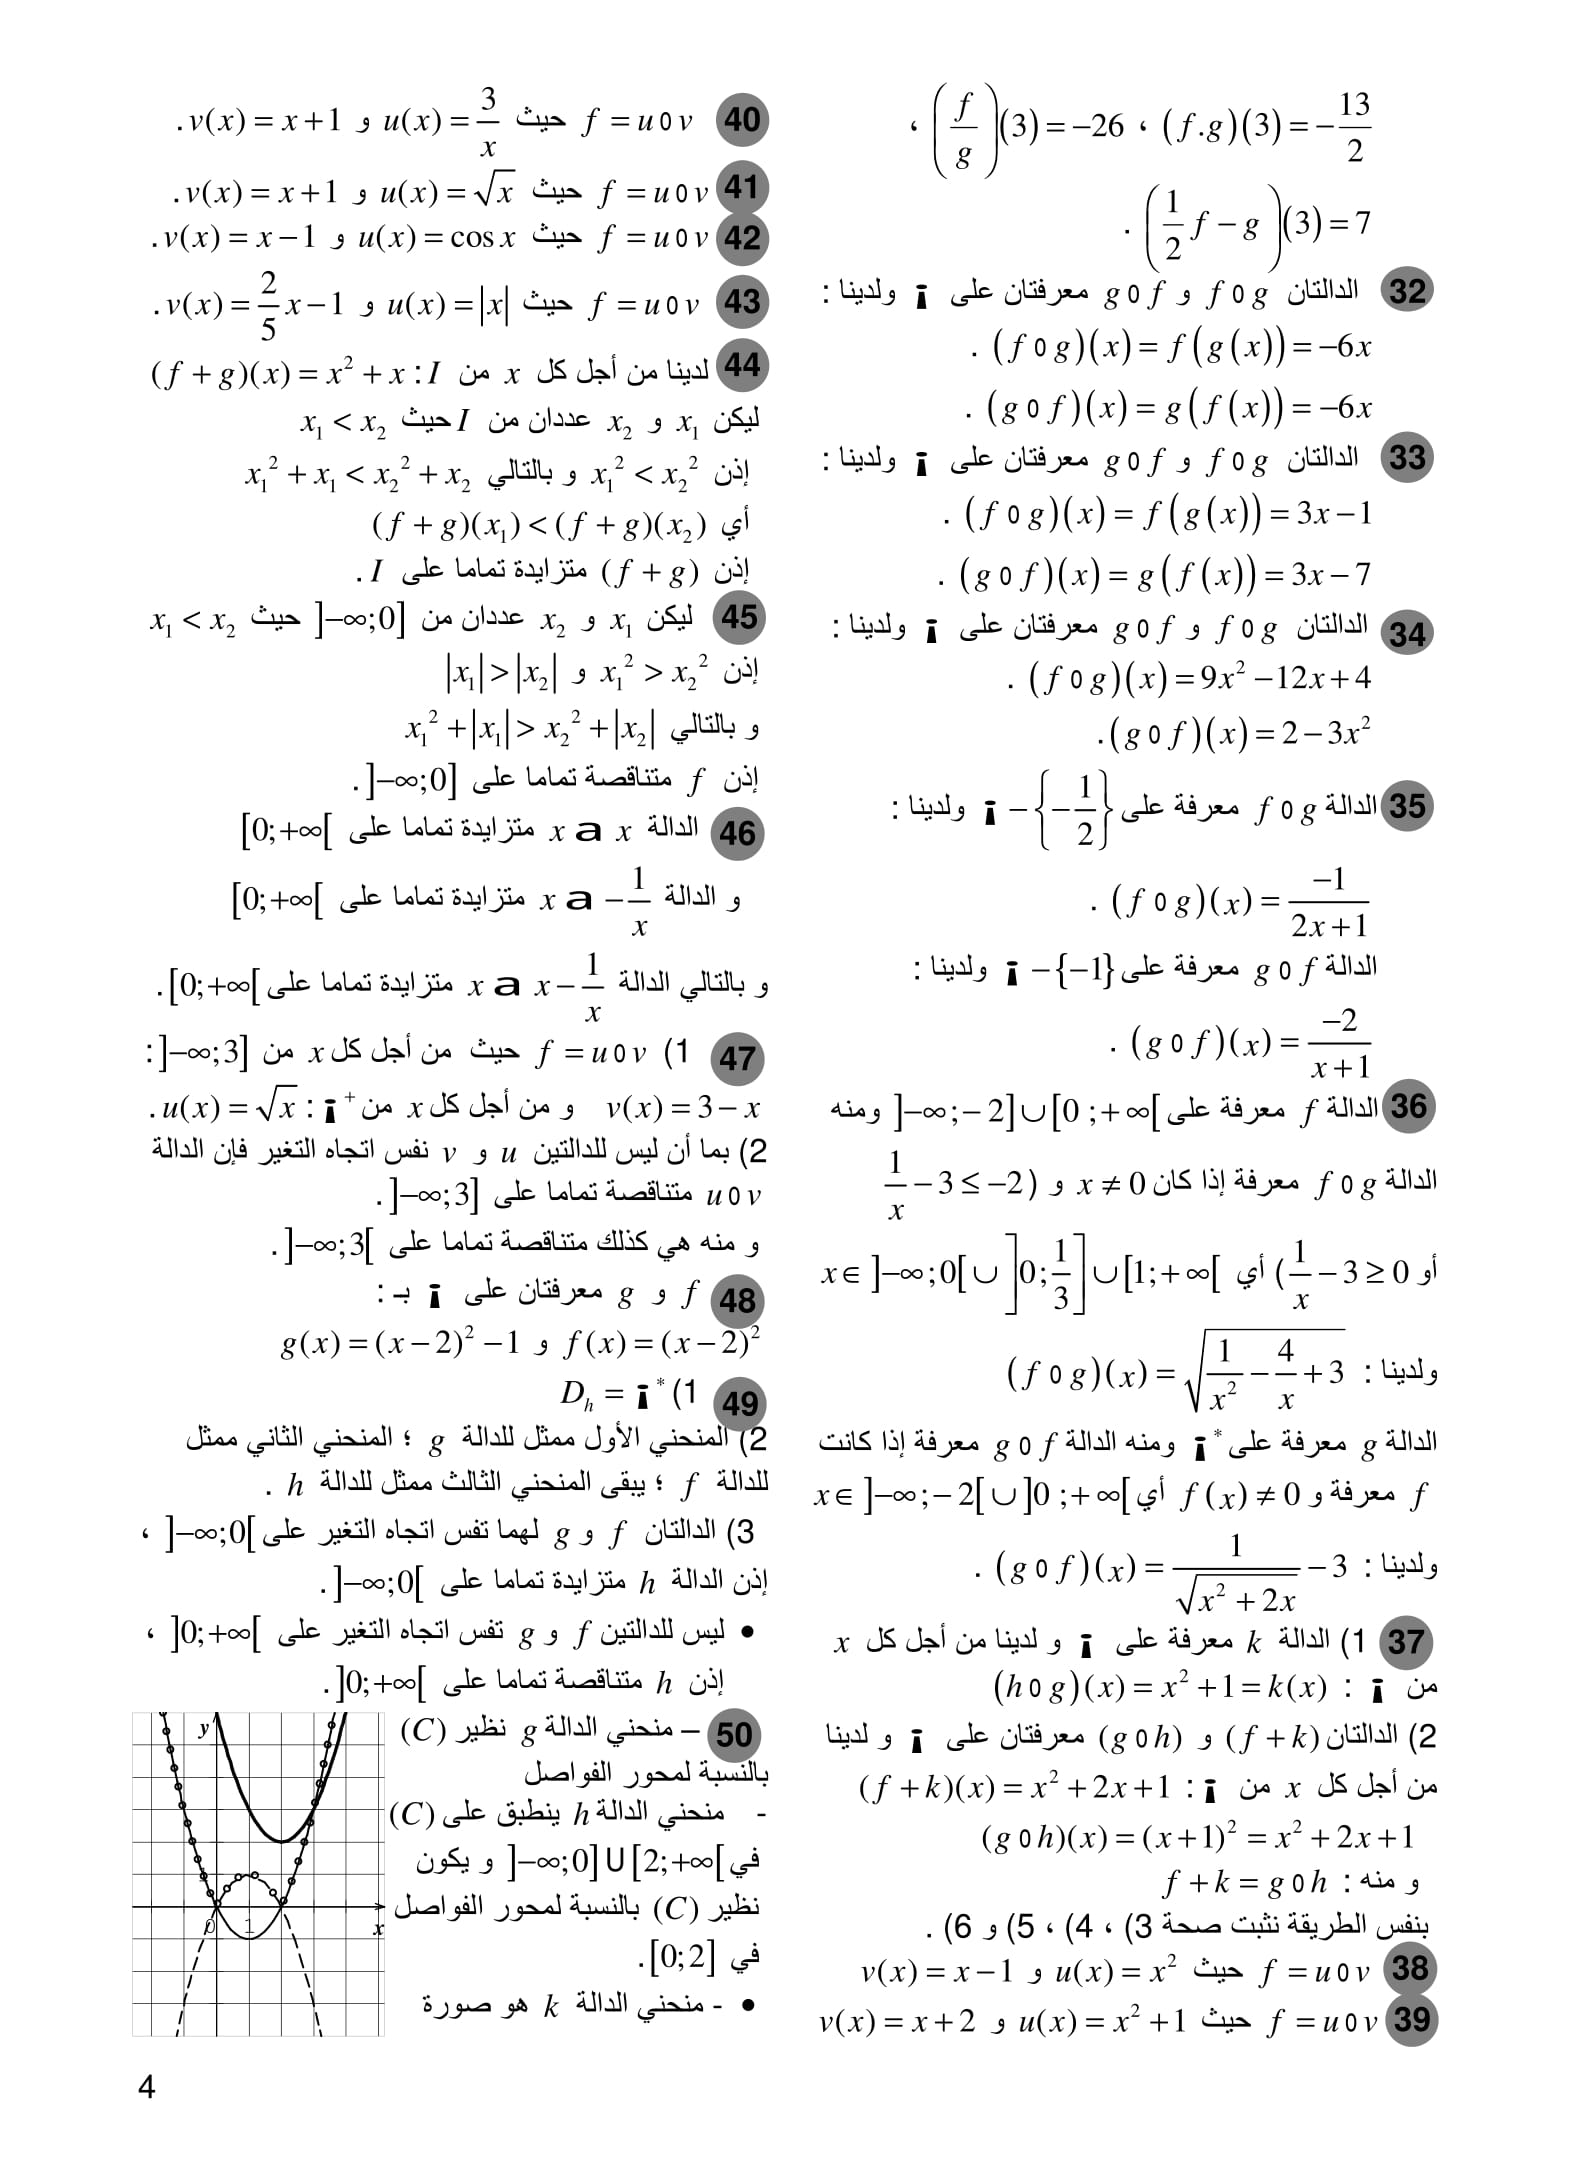 (f.g)(3) = -13/2 ، (f/g)(3) = -26 ،
(1/2 f - g)(3) = 7 .
32 الدالتان f o g و g o f معرفتان على ¡ ولدينا :
(f o g)(x) = f(g(x)) = -6x .
(g o f)(x) = g(f(x)) = -6x .
33 الدالتان f o g و g o f معرفتان على ¡ ولدينا :
(f o g)(x) = f(g(x)) = 3x - 1 .
(g o f)(x) = g(f(x)) = 3x - 7 .
34 الدالتان f o g و g o f معرفتان على ¡ ولدينا :
(f o g)(x) = 9x² - 12x + 4 .
(g o f)(x) = 2 - 3x² .
35 الدالة f o g معرفة على ¡ - {-1/2} ولدينا :
(f o g)(x) = -1/(2x+1) .
الدالة g o f معرفة على ¡ - {-1} ولدينا :
(g o f)(x) = -2/(x+1) .
36 الدالة f معرفة على ]-∞;-2]∪[0;+∞[ ومنه
الدالة f o g معرفة إذا كان x ≠ 0 و (1/x - 3 ≤ -2
أو 1/x - 3 ≥ 0) أي x∈ ]-∞;0[ ∪ ]0;1/3] ∪ [1;+∞[
ولدينا : (f o g)(x) = √(1/x² - 4/x + 3)
الدالة g معرفة على ¡* ومنه الدالة g o f معرفة إذا كانت
f معرفة و f(x) ≠ 0 أي x∈ ]-∞;-2[ ∪ ]0;+∞[
ولدينا : (g o f)(x) = 1/√(x² + 2x) - 3 .
37 1) الدالة k معرفة على ¡ و لدينا من أجل كل x
من ¡ : (h o g)(x) = x² + 1 = k(x)
2) الدالتان (f + k) و (g o h) معرفتان على ¡ و لدينا
من أجل كل x من ¡ : (f + k)(x) = x² + 2x + 1
(g o h)(x) = (x+1)² = x² + 2x + 1
و منه : f + k = g o h
بنفس الطريقة نثبت صحة 3) ، 4) ، 5) و 6) .
38 f = u o v حيث u(x) = x² و v(x) = x - 1
39 f = u o v حيث u(x) = x² + 1 و v(x) = x + 2
40 f = u o v حيث u(x) = 3/x و v(x) = x + 1 .
41 f = u o v حيث u(x) = √x و v(x) = x + 1 .
42 f = u o v حيث u(x) = cos x و v(x) = x - 1 .
43 f = u o v حيث u(x) = |x| و v(x) = 2/5 x - 1 .
44 لدينا من أجل كل x من I : (f + g)(x) = x² + x
ليكن x₁ و x₂ عددان من I حيث x₁ < x₂
إذن x₁² < x₂² و بالتالي x₁² + x₁ < x₂² + x₂
أي (f + g)(x₁) < (f + g)(x₂)
إذن (f + g) متزايدة تماما على I .
45 ليكن x₁ و x₂ عددان من ]-∞;0] حيث x₁ < x₂
إذن x₁² > x₂² و |x₁| > |x₂|
و بالتالي x₁² + |x₁| > x₂² + |x₂|
إذن f متناقصة تماما على ]-∞;0] .
46 الدالة x a x متزايدة تماما على [0;+∞[
و الدالة x a -1/x متزايدة تماما على [0;+∞[
و بالتالي الدالة x a x - 1/x متزايدة تماما على [0;+∞[ .
47 1) f = u o v حيث من أجل كل x من ]-∞;3] :
v(x) = 3 - x و من أجل كل x من ¡⁺ : u(x) = √x .
2) بما أن ليس للدالتين u و v نفس اتجاه التغير فإن الدالة
u o v متناقصة تماما على ]-∞;3] .
و منه هي كذلك متناقصة تماما على ]-∞;3[ .
48 f و g معرفتان على ¡ بـ :
f(x) = (x-2)² و g(x) = (x-2)² - 1
49 1) D_h = ¡*
2) المنحني الأول ممثل للدالة g ؛ المنحني الثاني ممثل
للدالة f ؛ يبقى المنحني الثالث ممثل للدالة h .
3) الدالتان f و g لهما تفس اتجاه التغير على ]-∞;0[ ،
إذن الدالة h متزايدة تماما على ]-∞;0[ .
• ليس للدالتين f و g تفس اتجاه التغير على ]0;+∞[ ،
إذن h متناقصة تماما على ]0;+∞[ .
50 – منحني الدالة g نظير (C)
بالنسبة لمحور الفواصل
- منحني الدالة h ينطبق على (C)
في ]-∞;0]U[2;+∞[ و يكون
نظير (C) بالنسبة لمحور الفواصل
في [0;2] .
• - منحني الدالة k هو صورة
y
0 1 x
4